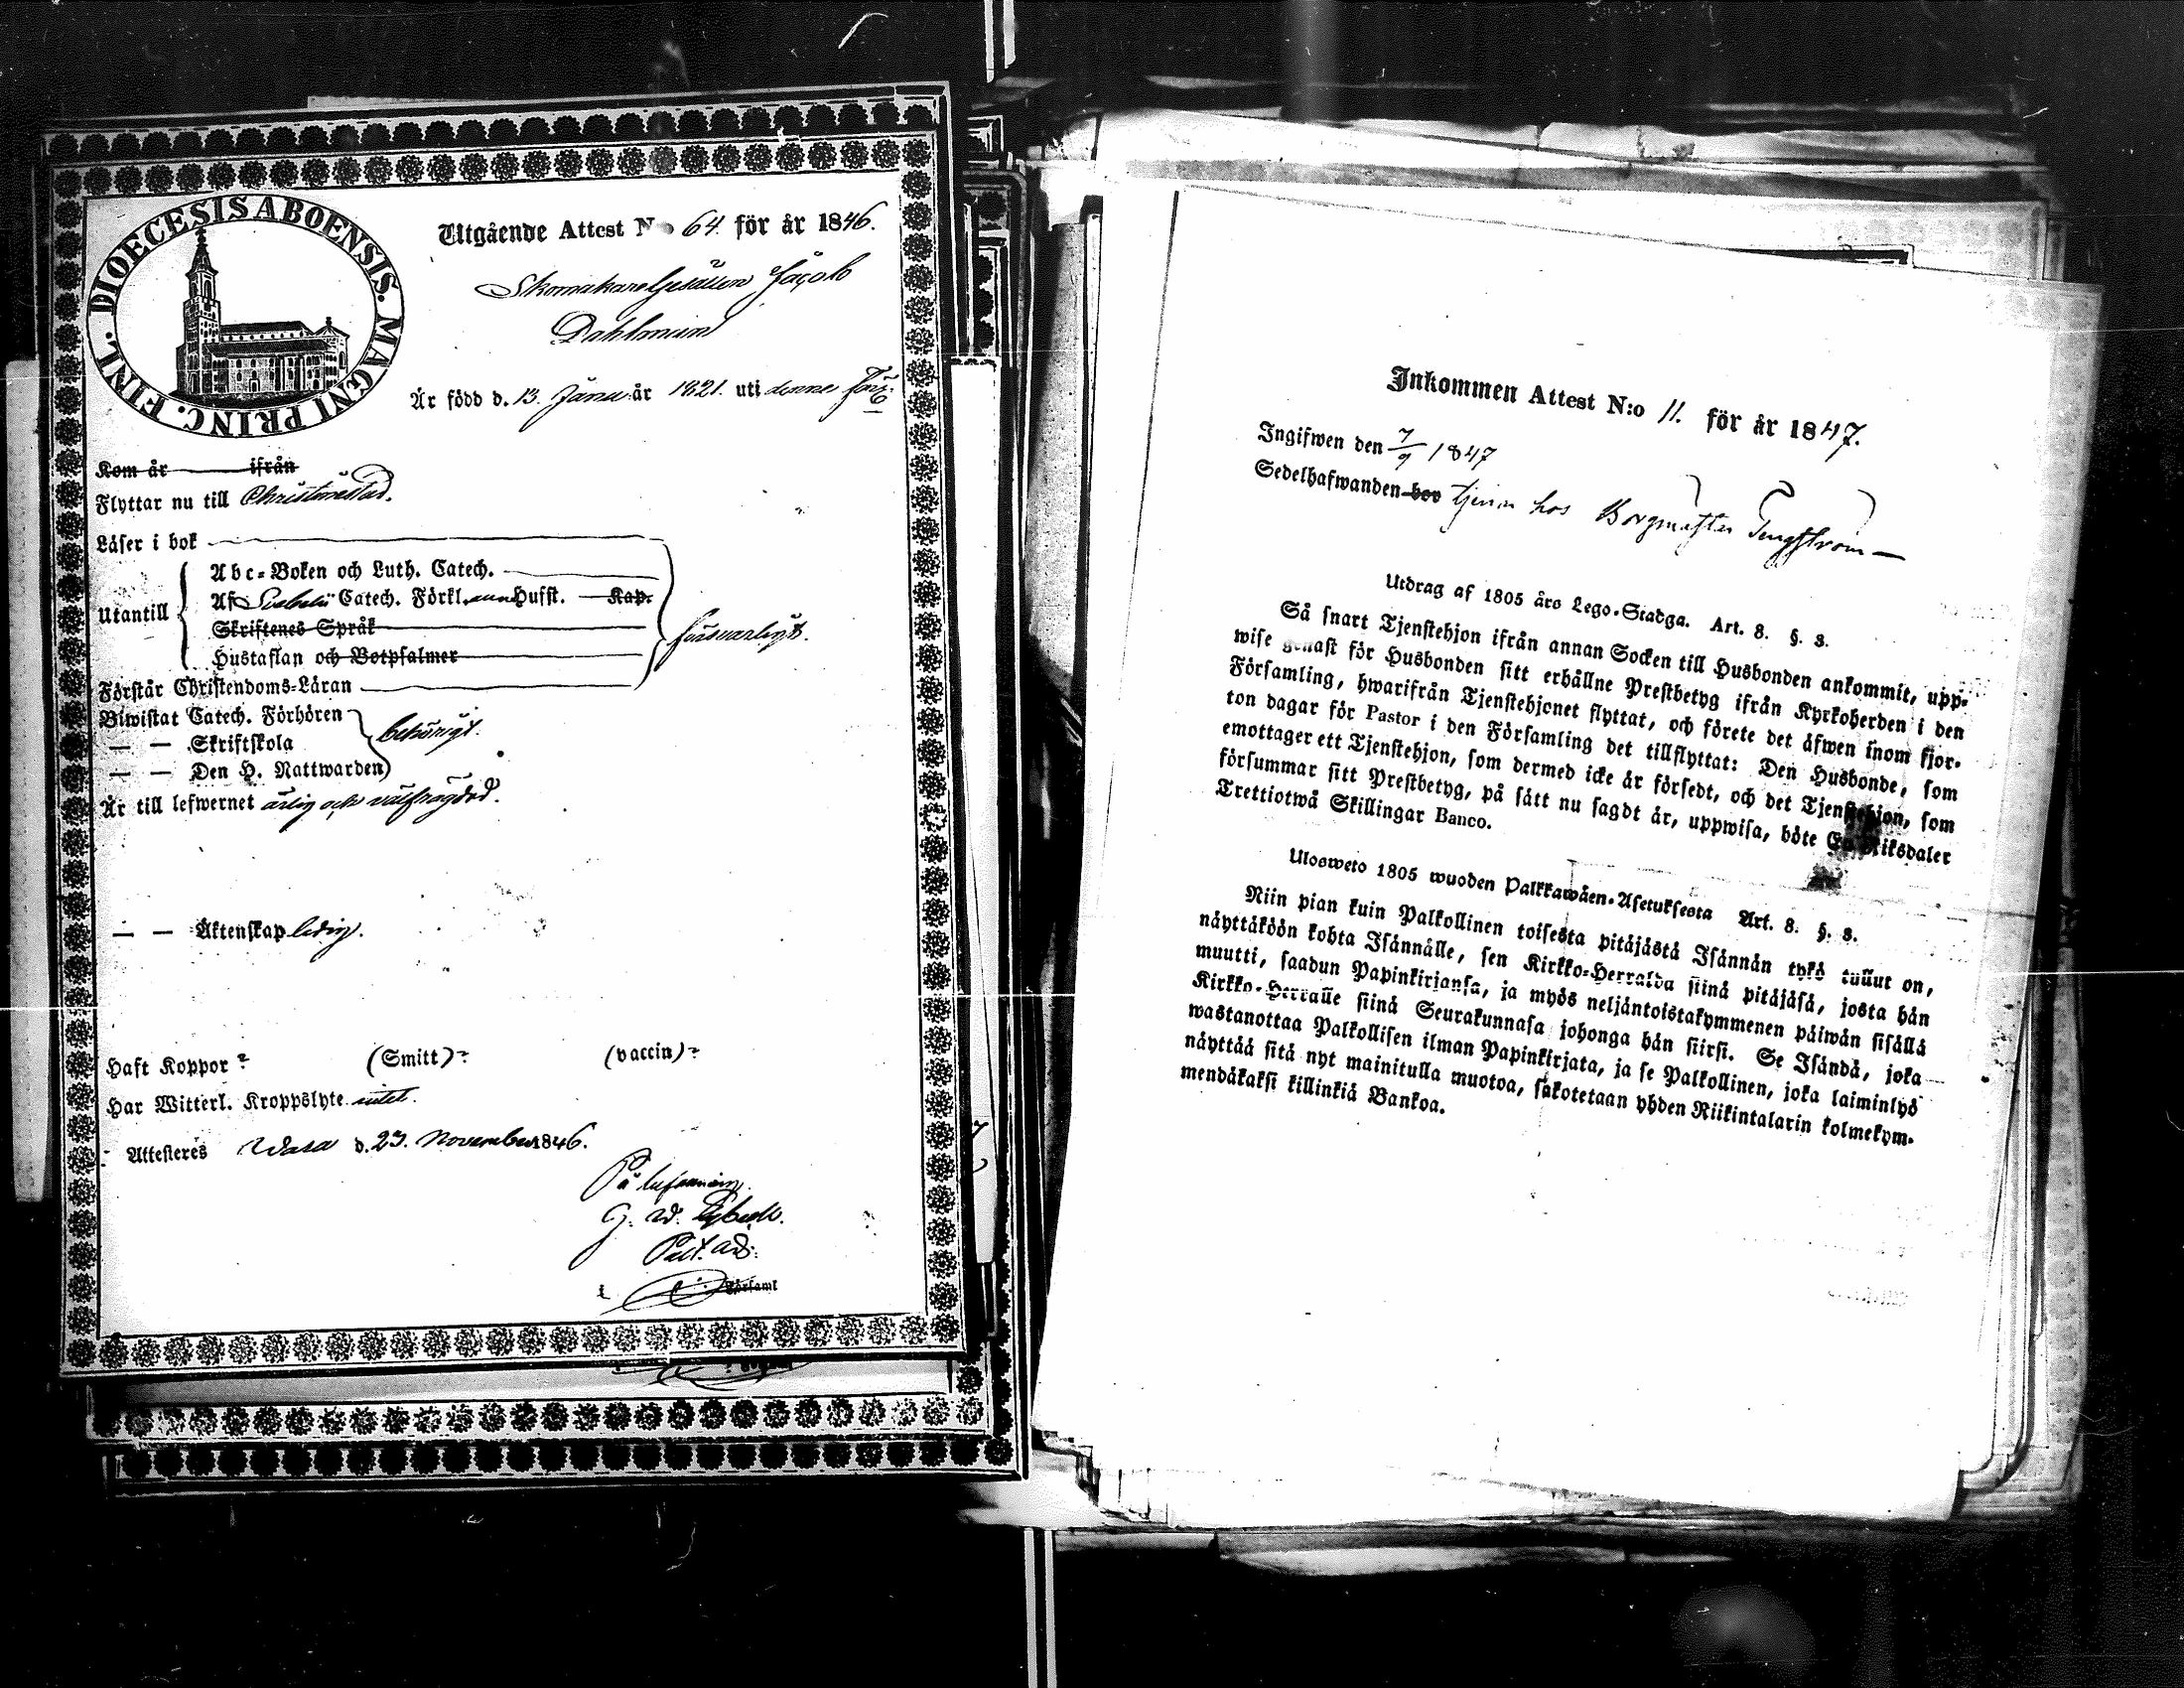 DIOECESIS ABOENSIS. MAGNI PRINC. FINL.
Utgående Attest N:o 64. för år 1846.
Skomakare Gesällen Jacob
Dahlman
Är född d. 13 Janu: år 1821. uti denna Förs:
Kom år ifrån
Flyttar nu till Christinestad.
Läser i bok
Utantill
Abc-Boken och Luth. Catech.
Af Svebelii Catech. Förkl. Husst. Kap.
Skriftenes Språk
Hustaflan och Botpsalmer
försvarligt.
Förstår Christendoms-Läran
Biwistat Catech. Förhören
— — Skriftskola
— — Den H. Nattwarden
behörigt.
Är till lefwernet ärlig och välfrägdad.
— — Äktenskap ledig.
Haft Koppor? (Smitt)? (vaccin)?
Har Witterl. Kroppslyte intet.
Attesteres Wasa d. 23. November 1846.
På befallning
G. W.
Past. adj:
i Församl
Inkommen Attest N:o 11. för år 1847.
Ingifwen den 7/9 1847
Sedelhafwanden bor tjenar hos Borgmästar Tengström —
Utdrag af 1805 års Lego-Stadga. Art. 8. §. 3.
Så snart Tjenstehjon ifrån annan Socken till Husbonden ankommit, upp-
wise genast för Husbonden sitt erhållne Prestbetyg ifrån Kyrkoherden i den
Församling, hwarifrån Tjenstehjonet flyttat, och förete det äfwen inom fjor-
ton dagar för Pastor i den Församling det tillflyttat: Den Husbonde, som
emottager ett Tjenstehjon, som dermed icke är försedt, och det Tjenstehjon, som
försummar sitt Prestbetyg, på sätt nu sagdt är, uppwisa, böte En Riksdaler
Trettiotwå Skillingar Banco.
Ulosweto 1805 wuoden Palkkawäen-Asetuksesta Art. 8. §. 3.
Niin pian kuin Palkollinen toisesta pitäjästä Isännän tykö tullut on,
näyttäköön kohta Isännälle, sen Kirkko-Herralda siinä pitäjäsä, josta hän
muutti, saadun Papinkirjansa, ja myös neljäntoistakymmenen päiwän sisällä
Kirkko-Herralle siinä Seurakunnasa johonga hän siirsi. Se Isändä, joka
wastanottaa Palkollisen ilman Papinkirjata, ja se Palkollinen, joka laiminlyö
näyttää sitä nyt mainitulla muotoa, sakotetaan yhden Riikintalarin kolmekym-
mendäkaksi killinkiä Bankoa.